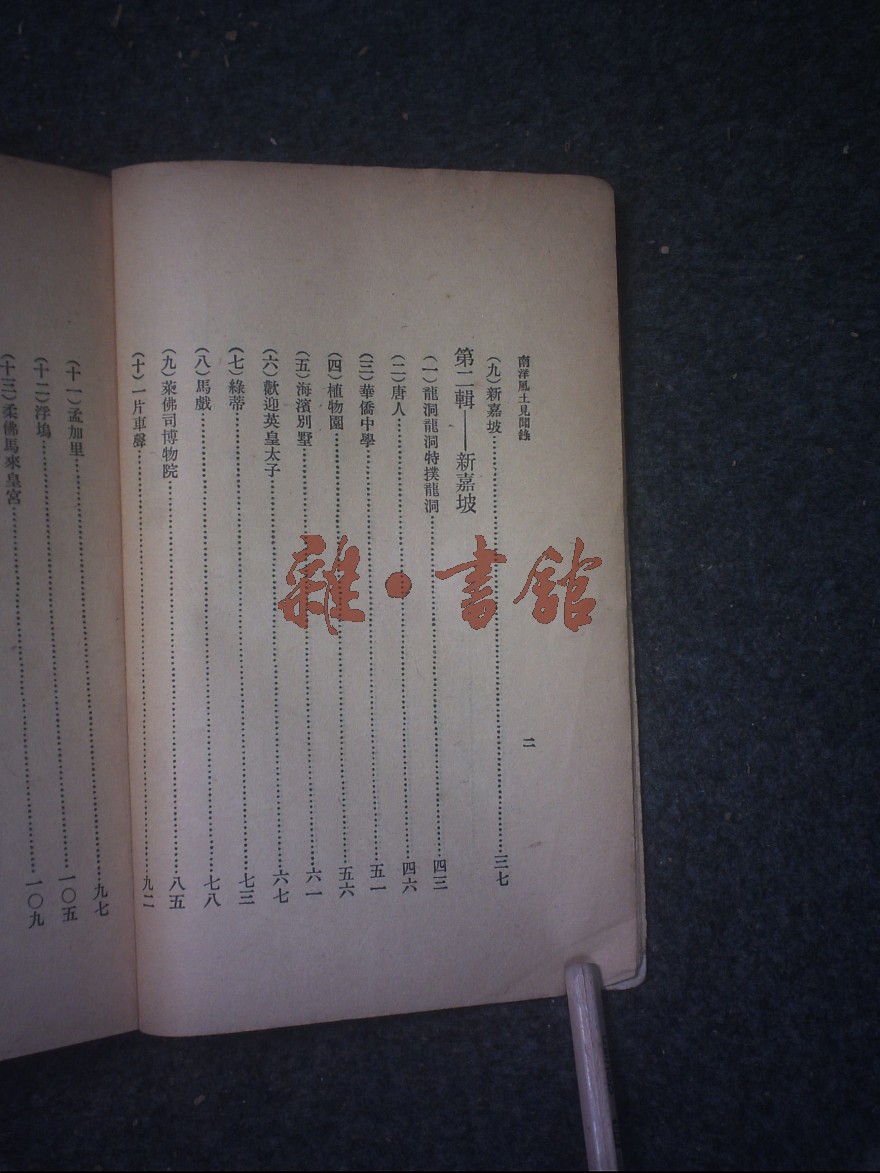 南洋風土見聞錄
二
(九)新嘉坡……三七
第二輯——新嘉坡
(一)龍洞龍洞特撲龍洞……四三
(二)唐人……四六
(三)華僑中學……五一
(四)植物園……五六
(五)海濱別墅……六一
(六)歡迎英皇太子……六七
(七)綠蒂……七三
(八)馬戲……七八
(九)萊佛司博物院……八五
(十)一片車聲……九二
(十一)孟加里……九七
(十二)浮塢……一〇五
(十三)柔佛馬來皇宮……一〇九
雜·書館